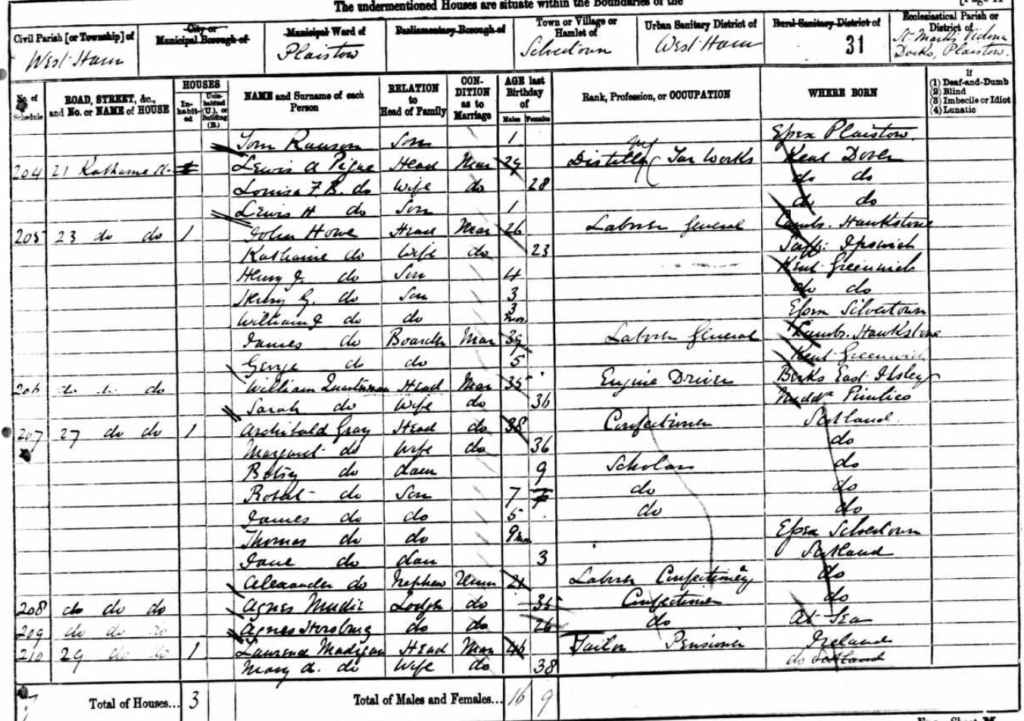 The undermentioned Houses are situate within the Boundaries of the
Civil Parish [or Township] of West Ham
City or Municipal Borough of
Municipal Ward of Plaistow
Parliamentary Borough of
Town or Village or Hamlet of Silvertown
Urban Sanitary District of West Ham
Rural Sanitary District of 31
Ecclesiastical Parish or District of St Marks Victoria Docks, Plaistow.
No. of Schedule ROAD, STREET, &c., and No. or NAME of HOUSE HOUSES In-habit-ed Uninhabited (U.), or Building (B.) NAME and Surname of each Person RELATION to Head of Family CON-DITION as to Marriage AGE last Birthday of Males Females Rank, Profession, or OCCUPATION WHERE BORN If (1) Deaf-and-Dumb (2) Blind (3) Imbecile or Idiot (4) Lunatic
Tom Rawson Son 1 Essex Plaistow
204 21 Katharine St 1 Lewis A Head Mar 29 Distiller Tar Works Kent Dover
Louisa F. B. do Wife do 28 do do
Lewis H do Son 1 do do
205 23 do do 1 John Howe Head Mar 26 Labourer General Cambs. Hawkstone
Katharine do Wife do 23 Suff: Ipswich
Henry J. do Son 4 Kent Greenwich
Henry G. do Son 3 do do
William J do do 3 mos Essex Silvertown
James do Boarder Mar 39 Labourer General Cambs. Hawkstone
George do do 5 Kent Greenwich
206 do do do William Head Mar 35 Engine Driver Berks East Ilsley
Sarah do Wife do 36 Middx Pimlico
207 27 do do 1 Archibald Gray Head do 38 Confectioner Scotland
Margaret do Wife do 36 do
Betsy do daur 9 Scholar do
Robert do Son 7 7 do do
James do do 5 do do
Thomas do do 9 mos Essex Silvertown
Jane do daur 3 Scotland
Alexander do Nephew Unm 21 Labourer Confectionery do
208 do do do Agnes Mudie Lodger do 35 Confectioner do
209 do do do Agnes do do 26 do At Sea
210 29 do do 1 Laurence Madigan Head Mar 46 Pensioner Ireland
Mary A. do Wife do 38 do Scotland
Total of Houses... 3 Total of Males and Females... 16 9